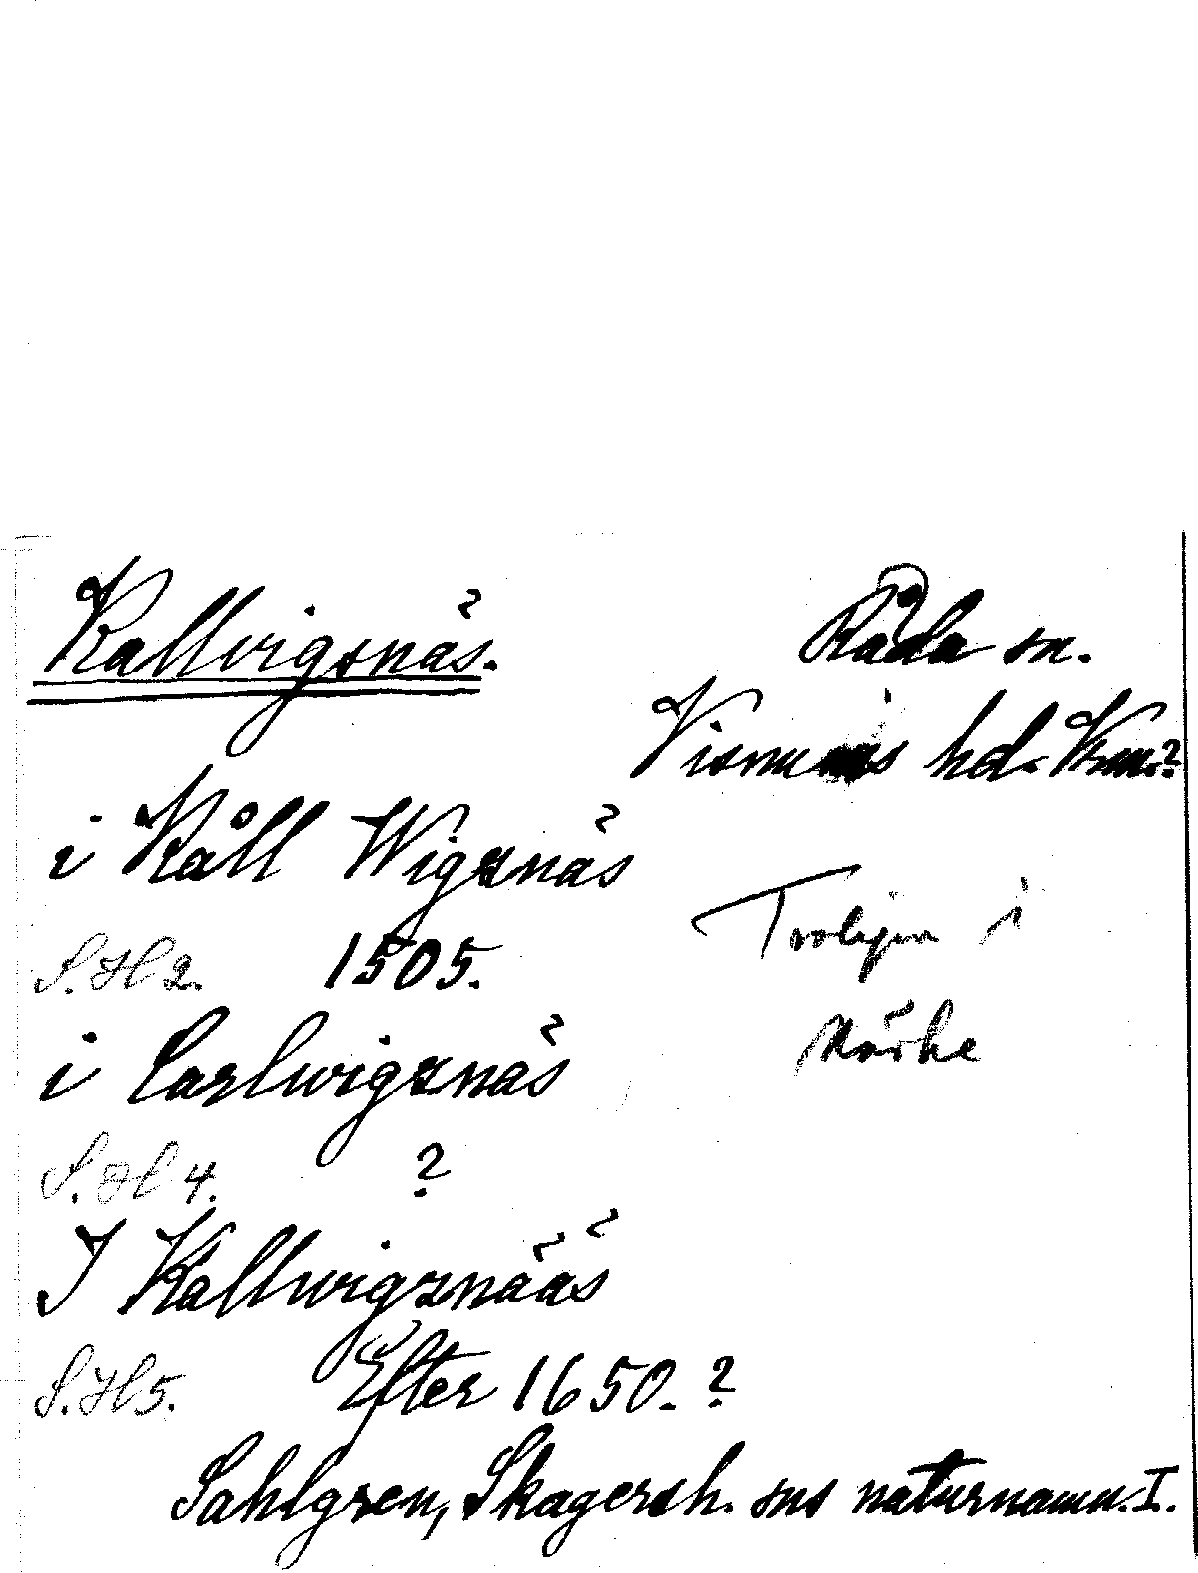 Kallvigsnäs.
Råda sn.
Visnums hd. Krm.?
i Kåll Wigsnäs
S.H 2. 1505.
Troligen i
Närke
i Carlwigsnäs
S.H 4. ?
I Kallwigsnääs
S.H 5. Efter 1650.?
Sahlgren, Skagersh. sns naturnamn. I.